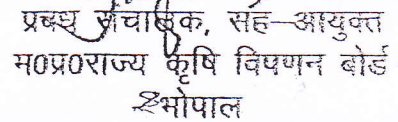 प्रबंध संचालक, सह-आयुक्त
म0प्र0राज्य कृषि विपणन बोर्ड
भोपाल